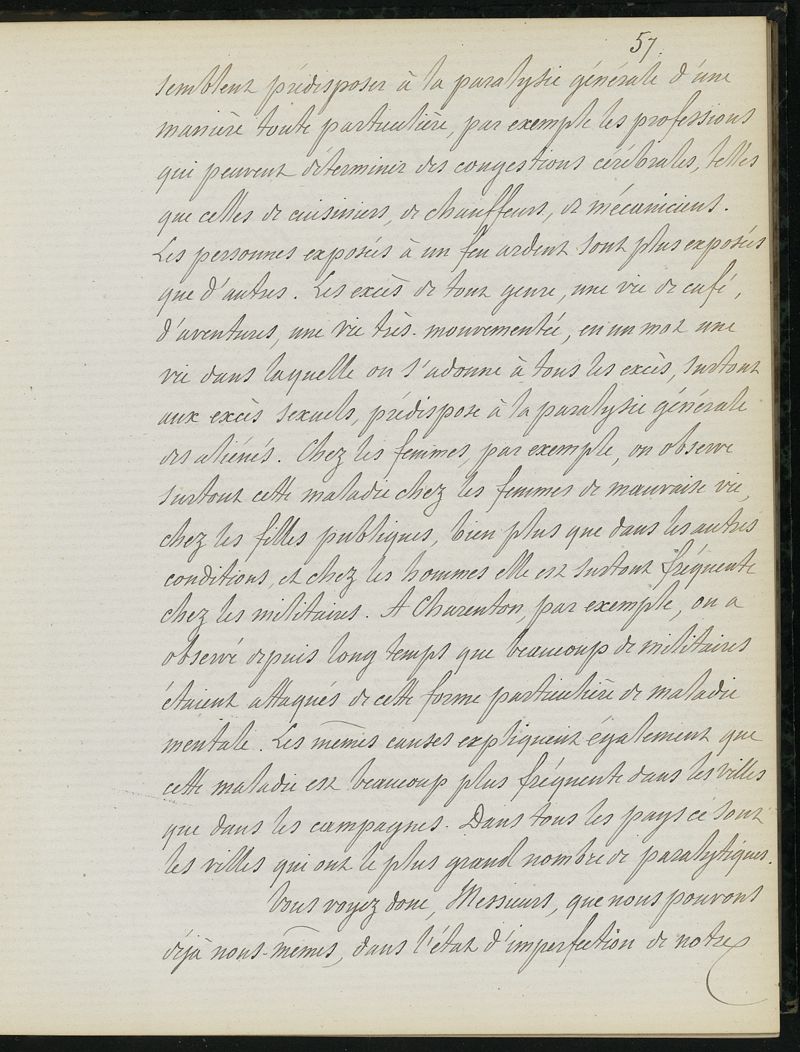 57.
semblent prédisposer à la paralysie générale d'une
manière toute particulière, par exemple les professions
qui peuvent déterminer des congestions cérébrales, telles
que celles de cuisiniers, de chauffeurs, de mécaniciens.
Les personnes exposées à un feu ardent sont plus exposées
que d'autres. Les excès de tout genre, une vie de café,
d'aventures, une vie très-mouvementée, en un mot une
vie dans laquelle on s'adonne à tous les excès, surtout
aux excès sexuels, prédispose à la paralysie générale
des aliénés. Chez les femmes, par exemple, on observe
surtout cette maladie chez les femmes de mauvaise vie,
chez les filles publiques, bien plus que dans les autres
conditions, et chez les hommes elle est surtout fréquente
chez les militaires. A Charenton, par exemple, on a
observé depuis long temps que beaucoup de militaires
étaient attaqués de cette forme particulière de maladie
mentale. Les mêmes causes expliquent également que
cette maladie est beaucoup plus fréquente dans les villes
que dans les campagnes. Dans tous les pays ce sont
les villes qui ont le plus grand nombre de paralytiques.
Vous voyez donc, Messieurs, que nous pouvons
déjà nous-mêmes, dans l'état d'imperfection de notre